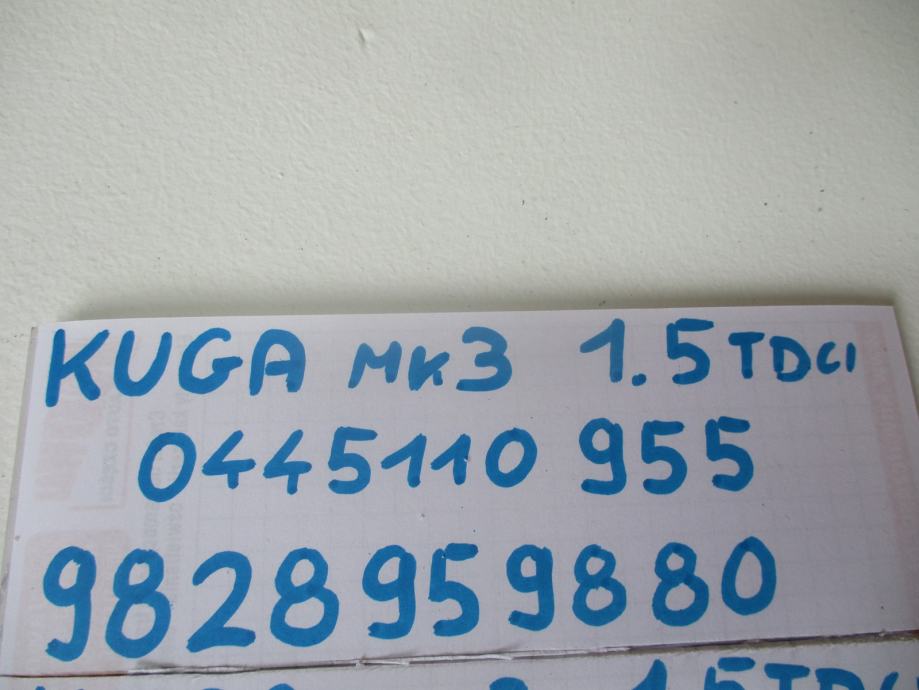 KUGA MK3 1.5 TDCI
0445110 955
9828959880
1.5TDCI